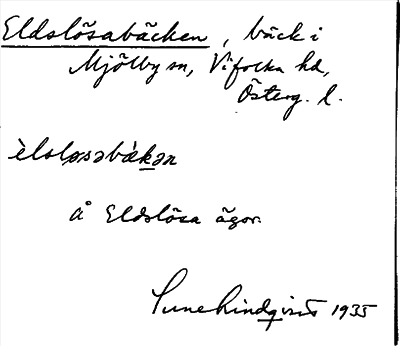 Eldslösabäcken, bäck i
Mjölby sn, Vifolka hd,
Österg. l.
èlsløsəbä̀kən
å Eldslösa ägor.
Sune Lindqvist 1935